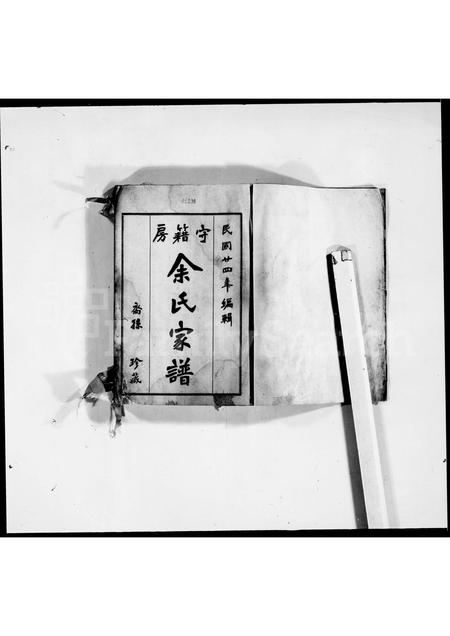 民國廿四年編輯
守籍房
余氏家譜
裔孫 珍藏